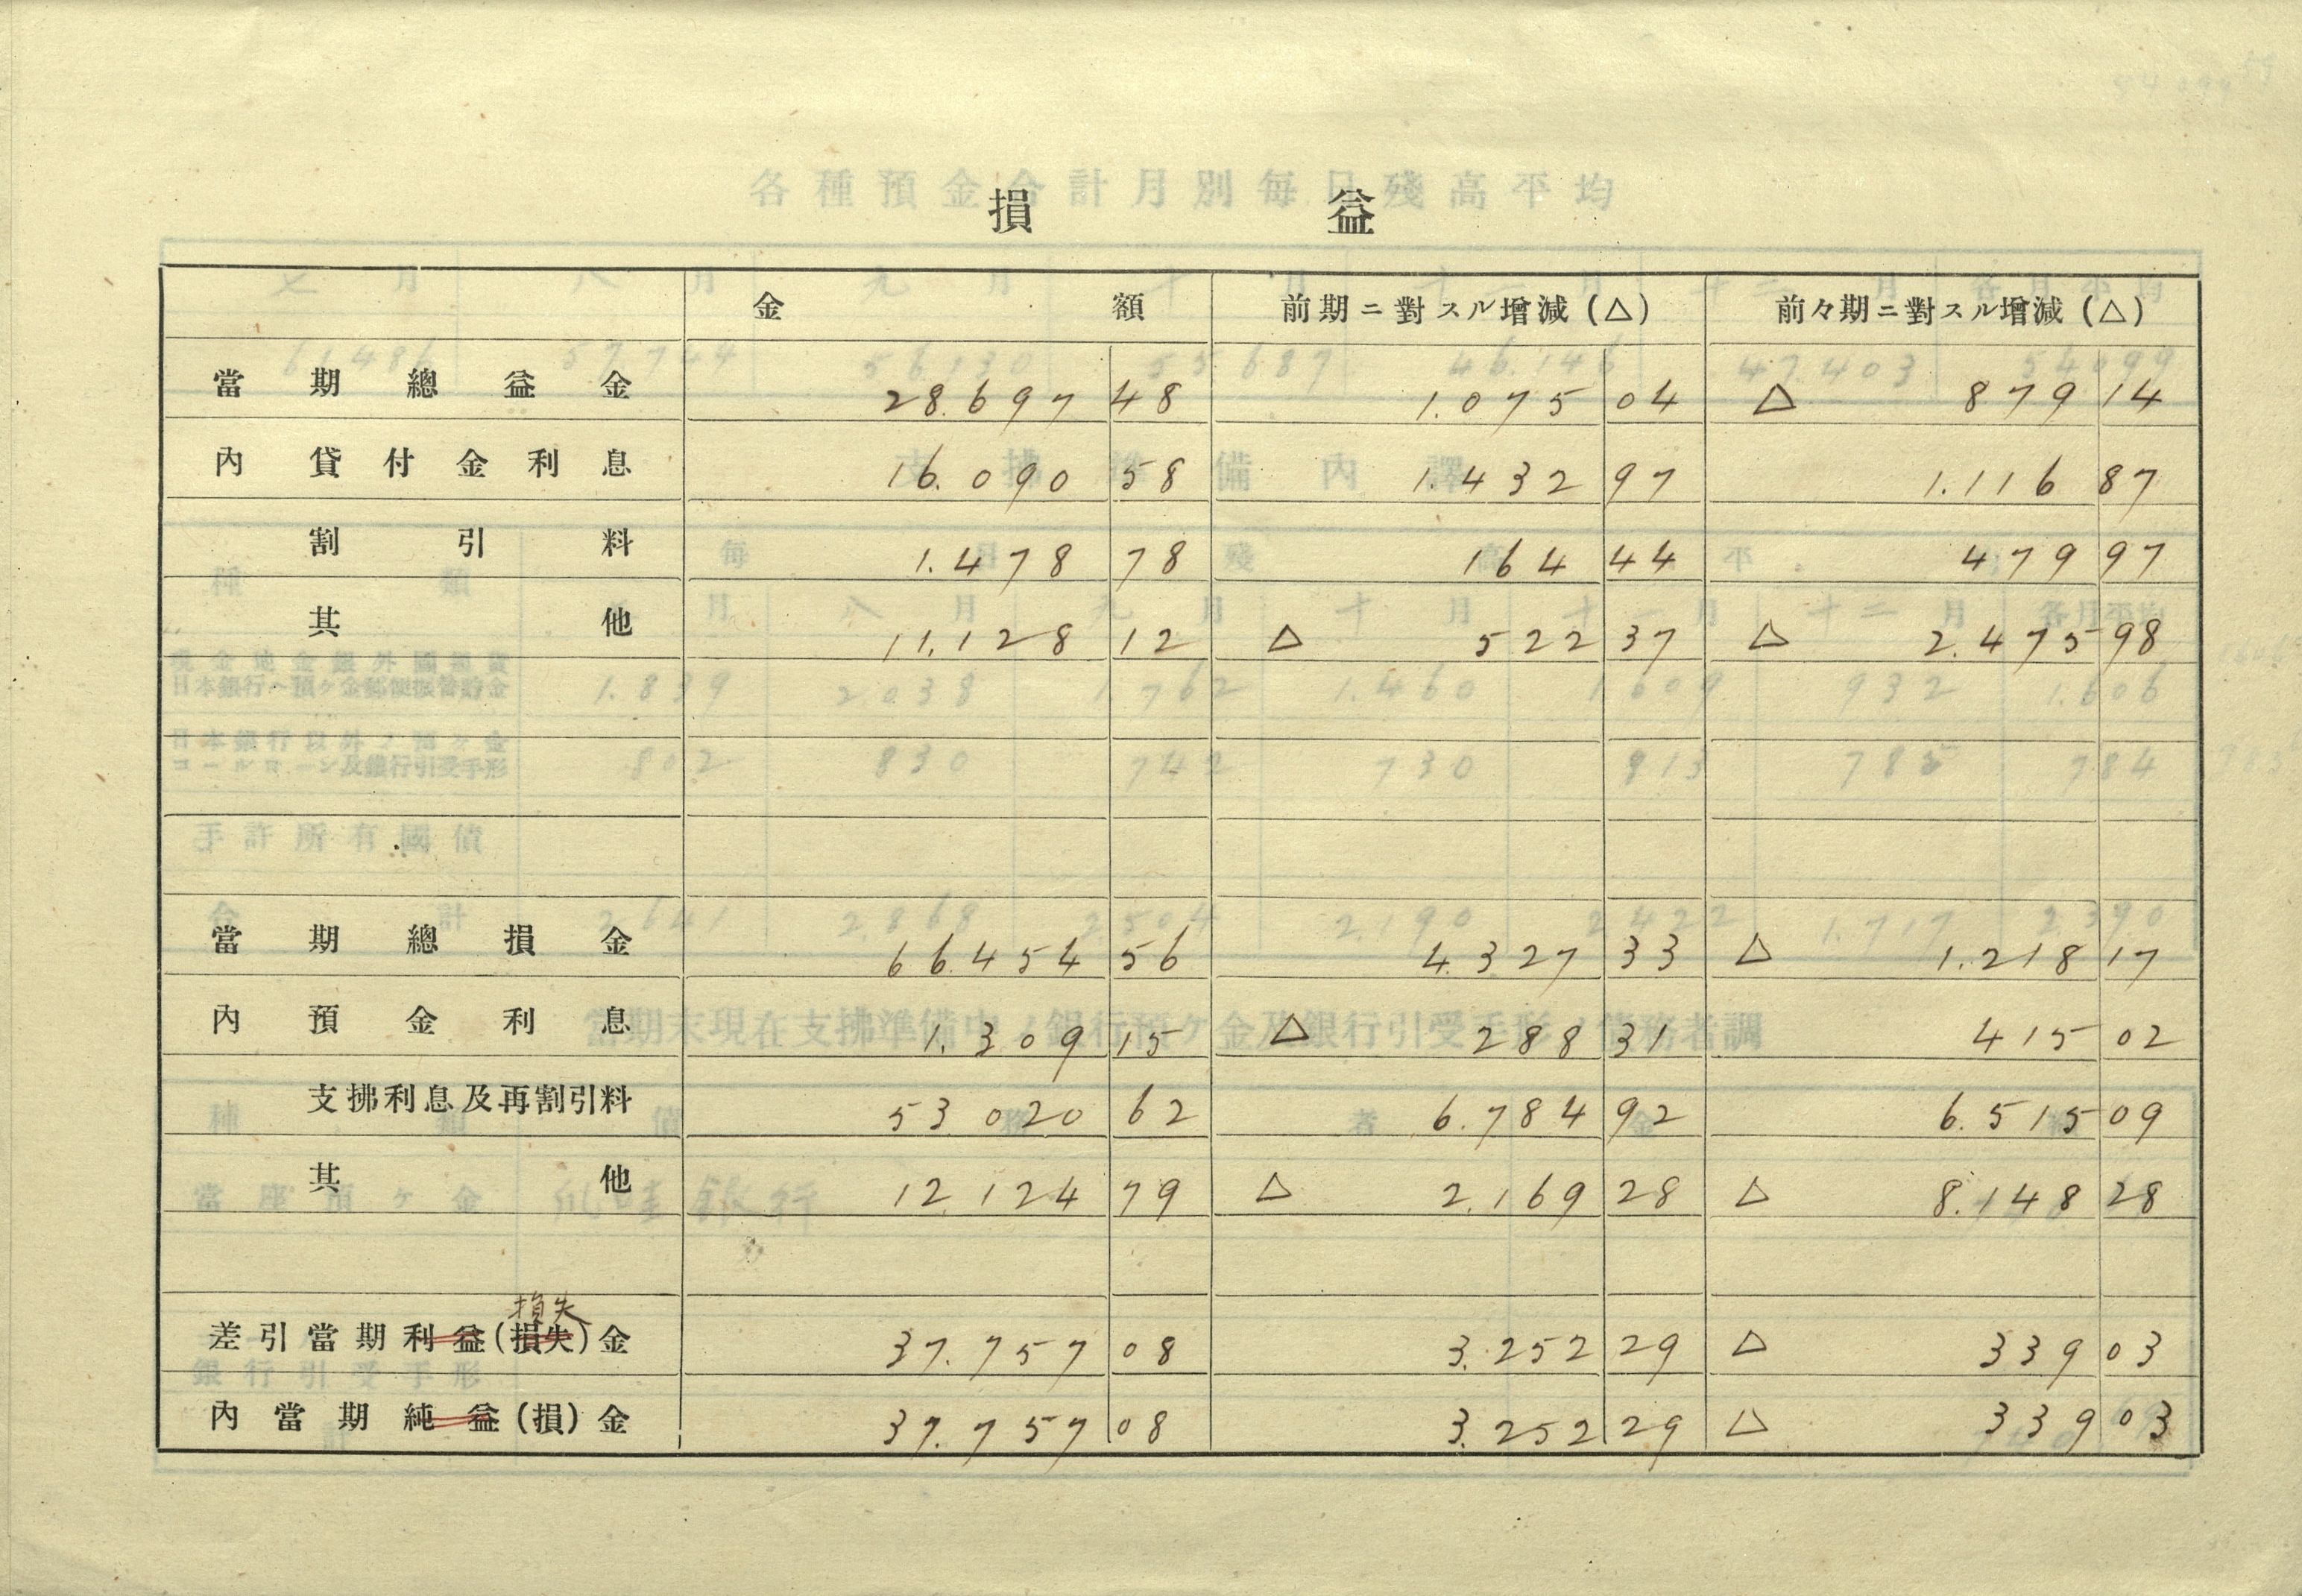 損 益
金 額 前期ニ對スル增減(△) 前々期ニ對スル增減(△)
當期總益金 28.697 48 1.075 04 △ 879 14
內 貸付金利息 16.090 58 1.432 97 1.116 87
割引料 1.478 78 164 44 479 97
其他 11.128 12 △ 522 37 △ 2.475 98
當期總損金 66.454 56 4.327 33 △ 1.218 17
內 預金利息 1.309 15 △ 288 31 415 02
支拂利息及再割引料 53.020 62 6.784 92 6.515 09
其他 12.124 79 △ 2.169 28 △ 8.148 28
損失
差引當期利益(損失)金 37.757 08 3.252 29 △ 339 03
內當期純益(損)金 37.757 08 3.252 29 △ 339 03